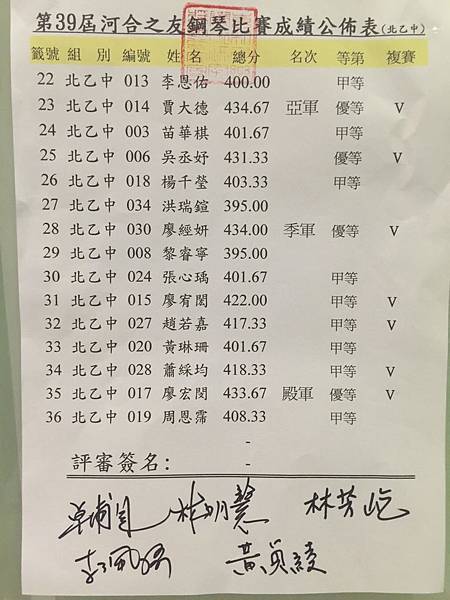 第39屆河合之友鋼琴比賽成績公佈表(北乙中)
籤號 組 別 編號 姓 名 總分 名次 等第 複賽
22 北乙中 013 李恩佑 400.00 甲等
23 北乙中 014 賈大德 434.67 亞軍 優等 V
24 北乙中 003 苗華棋 401.67 甲等
25 北乙中 006 吳丞妤 431.33 優等 V
26 北乙中 018 楊千瑩 403.33 甲等
27 北乙中 034 洪瑞鍹 395.00
28 北乙中 030 廖經妍 434.00 季軍 優等 V
29 北乙中 008 黎睿寧 395.00
30 北乙中 024 張心瑀 401.67 甲等
31 北乙中 015 廖宥閎 422.00 甲等 V
32 北乙中 027 趙若嘉 417.33 甲等 V
33 北乙中 020 黃琳珊 401.67 甲等
34 北乙中 028 蕭綵均 418.33 甲等 V
35 北乙中 017 廖宏閔 433.67 殿軍 優等 V
36 北乙中 019 周恩霈 408.33 甲等
-
評審簽名: -
林明慧 林芳屹
黃貞綾